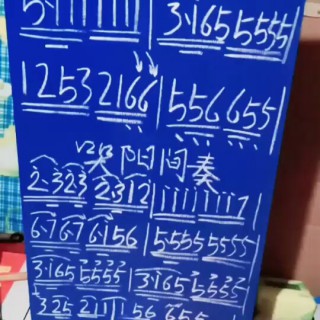 5·1111111 3·1655555
12532166 556655
唢呐间奏
2·3232·312 11111111
67676156 55555555
3·1655555 3·1655555
325211156655